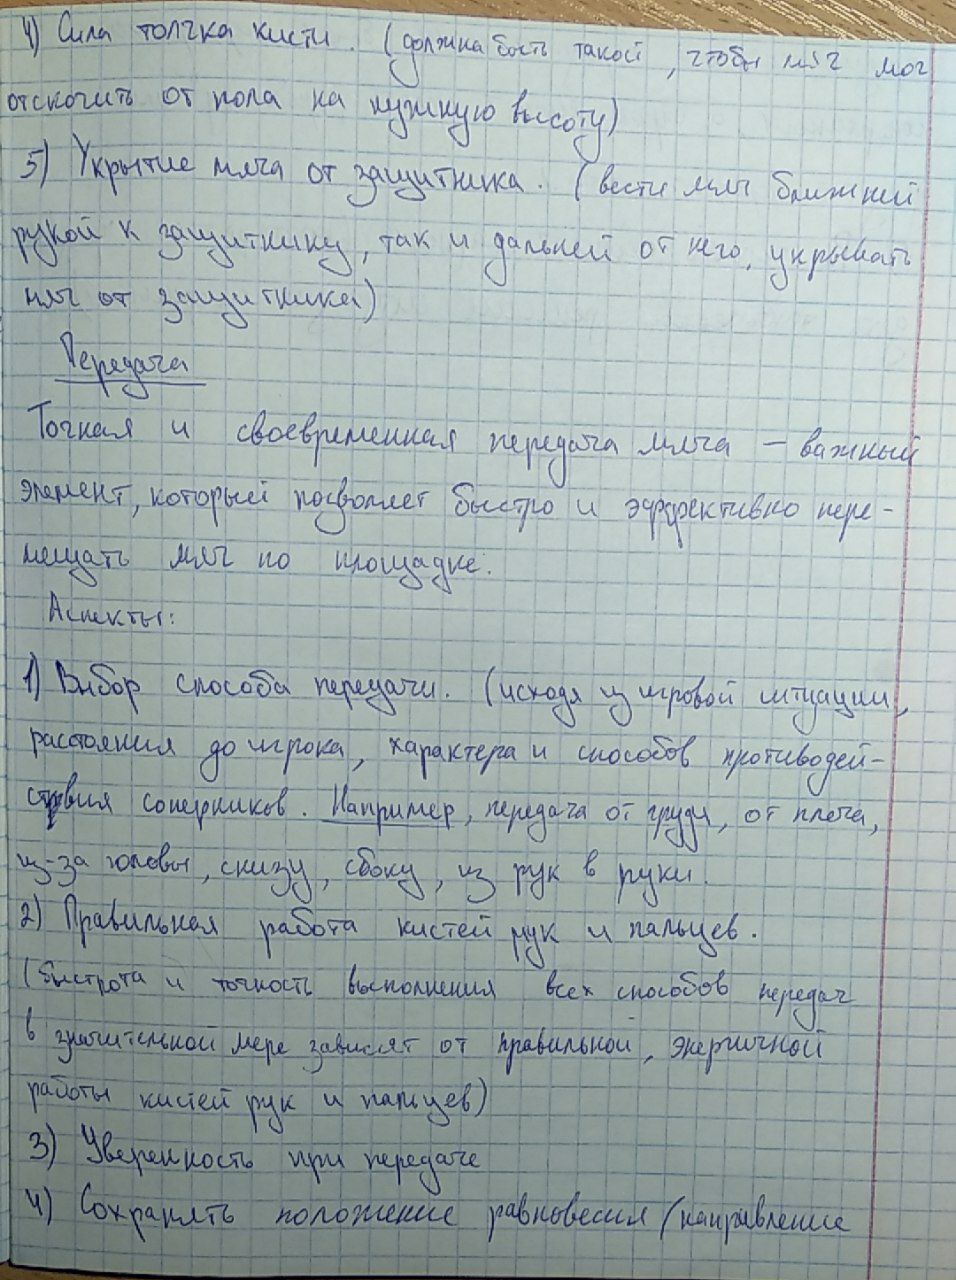 4) Сила толчка кисти. (должна быть такой, чтобы мяч мог
отскочить от пола на нужную высоту)
5) Укрытие мяча от защитника. (вести мяч ближней
рукой к защитнику, так и дальней от него, укрывать
мяч от защитника)
Передача
Точная и своевременная передача мяча – важный
элемент, который позволяет быстро и эффективно пере-
мещать мяч по площадке.
Аспекты:
1) Выбор способа передачи. (исходя из игровой ситуации,
расстояния до игрока, характера и способов противодей-
ствия соперников. Например, передача от груди, от плеча,
из-за головы, снизу, сбоку, из рук в руки.
2) Правильная работа кистей рук и пальцев.
(быстрота и точность выполнения всех способов передач
в значительной мере зависят от правильной, энергичной
работы кистей рук и пальцев)
3) Уверенность при передаче
4) Сохранять положение равновесия (направление